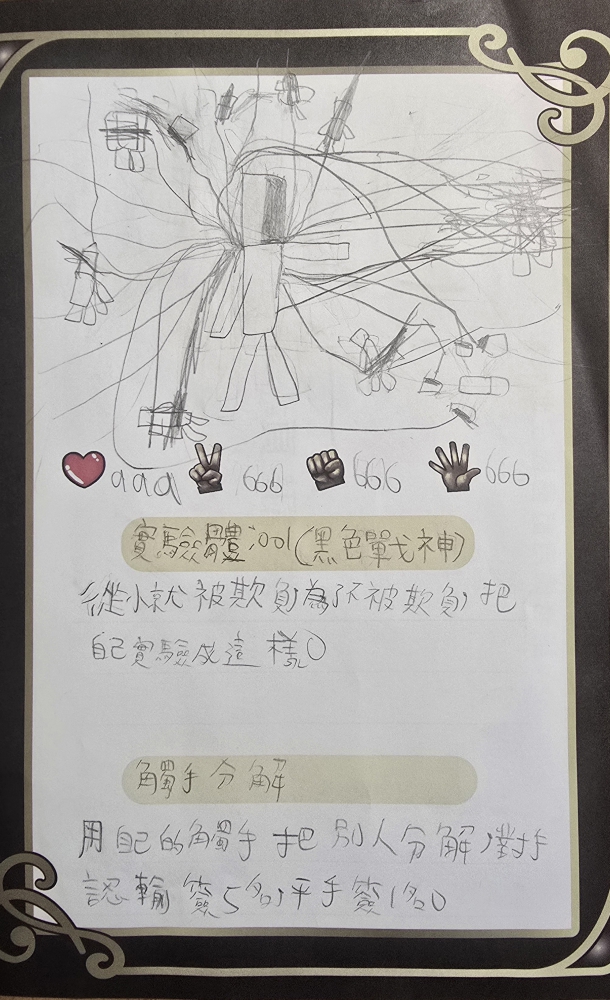 999 666 666 666
實驗體:001(黑色戰神)
從小就被欺負,為了不被欺負,把
自己實驗成這樣。
觸手分解
用自己的觸手把別人分解,對手
認輸簽5名,平手簽1名。